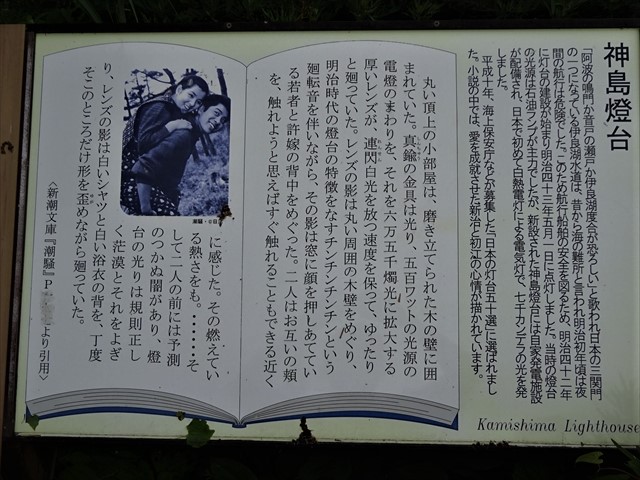 神島燈台
「阿波の鳴門か音戸の瀬戸か伊良湖度合が恐ろしい」と歌われ日本の三関門
の一つになっている伊良湖水道は、昔から海の難所と言われ明治初年頃は夜
間の航行は危険でした。このため航行船舶の安全を図るため、明治四十二年
に灯台の建設が始まり明治四十三年五月一日に点灯しました。当時の灯台
の光源は石油ランプが主力でしたが、新設された神島燈台には自家発電施設
が配備され、日本で初めて白熱電灯による電気灯で、七千カンデラの光を発
しました。
平成十年、海上保安庁などが募集した「日本の灯台五十選」に選ばれまし
た。小説の中では、愛を成就させた新治と初江の心情が描かれています。
丸い頂上の小部屋は、磨き立てられた木の壁に囲
まれていた。真鍮の金具は光り、五百ワットの光源の
電燈のまわりを、それを六万五千燭光に拡大する
厚いレンズが、連閃白光を放つ速度を保って、ゆったり
と廻っていた。レンズの影は丸い周囲の木壁をめぐり、
明治時代の燈台の特徴をなすチンチンチンチンという
廻転音を伴いながら、その影は窓に顔を押しあててい
る若者と許嫁の背中をめぐった。二人はお互いの頬
を、触れようと思えばすぐ触れることもできる近く
に感じた。その燃えてい
る熱さをも。・・・・・・そ
して二人の前には予測
のつかぬ闇があり、燈
台の光りは規則正し
く茫漠とそれをよぎ
り、レンズの影は白いシャツと白い浴衣の背を、丁度
そこのところだけ形を歪めながら廻っていた。
〈新潮文庫『潮騒』P より引用〉
Kamishima Lighthouse